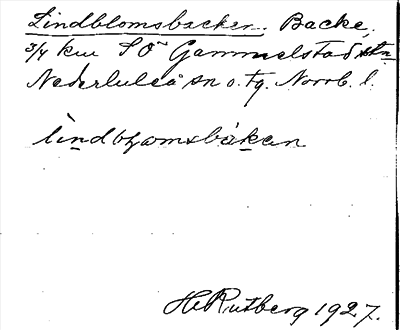 Lindblomsbacken. Backe,
3/4 km SÖ Gammelstad stn
Nederluleå sn o. tg. Norrb. l.
lindblomsbakan
H Rutberg 1927.